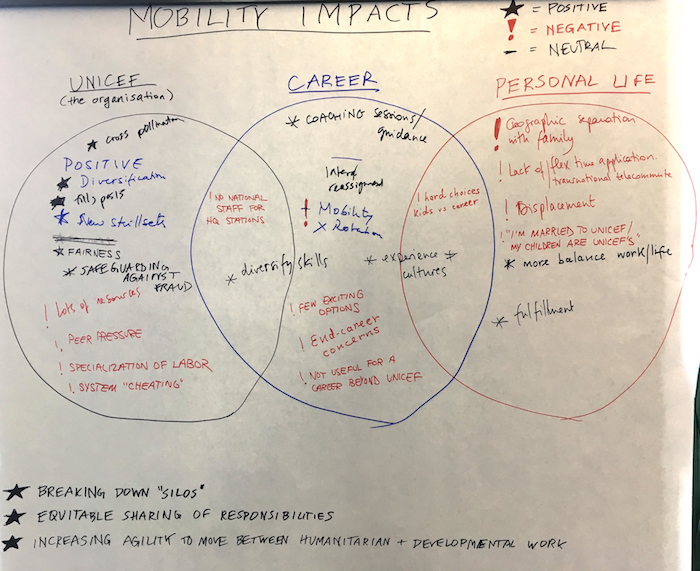 MOBILITY IMPACTS
★ = POSITIVE
! = NEGATIVE
– = NEUTRAL
UNICEF
(the organisation)
★ cross pollination
POSITIVE
★ Diversification
★ fill posts
★ New skillsets
★ FAIRNESS
★ SAFEGUARDING
AGAINST
FRAUD
! Lots of resources
! PEER PRESSURE
! SPECIALIZATION OF LABOR
! SYSTEM "CHEATING"
! NO NATIONAL
STAFF FOR
HQ STATIONS
* diversify skills
CAREER
* COACHING SESSIONS/
guidance
reassignment
! Mobility
X Rotation
* experience ≠
cultures
! FEW EXCITING
OPTIONS
! End-career
concerns
! NOT USEFUL FOR A
CAREER BEYOND UNICEF
! hard choices
kids vs career
PERSONAL LIFE
! Geographic separation
with family
! Lack of/flex time application.
transnational telecommute
! Displacement
! "I'M MARRIED TO UNICEF/
MY CHILDREN ARE UNICEF'S"
* more balance work/life
* fulfillment
★ BREAKING DOWN "SILOS"
★ EQUITABLE SHARING OF RESPONSIBILITIES
★ INCREASING AGILITY TO MOVE BETWEEN HUMANITARIAN + DEVELOPMENTAL WORK